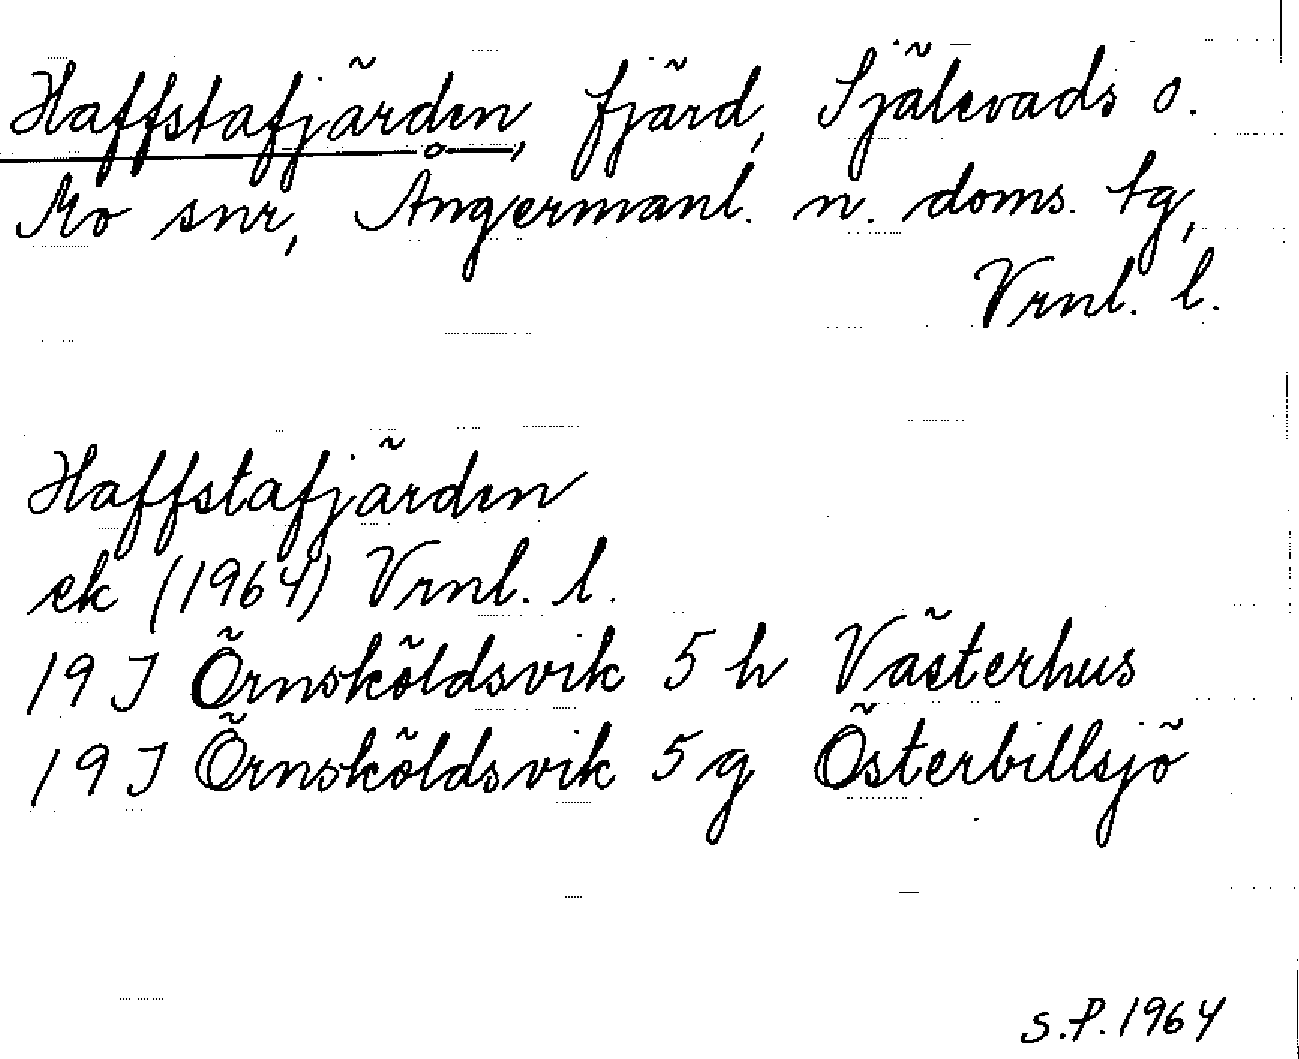 Haffstafjärden, fjärd, Själevads o.
Mo snr, Ångermanl. n. doms. tg,
Vrnl. l.
Haffstafjärden
ek (1964) Vrnl. l.
19 J Örnsköldsvik 5 h Västerhus
19 J Örnsköldsvik 5 g Österbillsjö
S.P. 1964